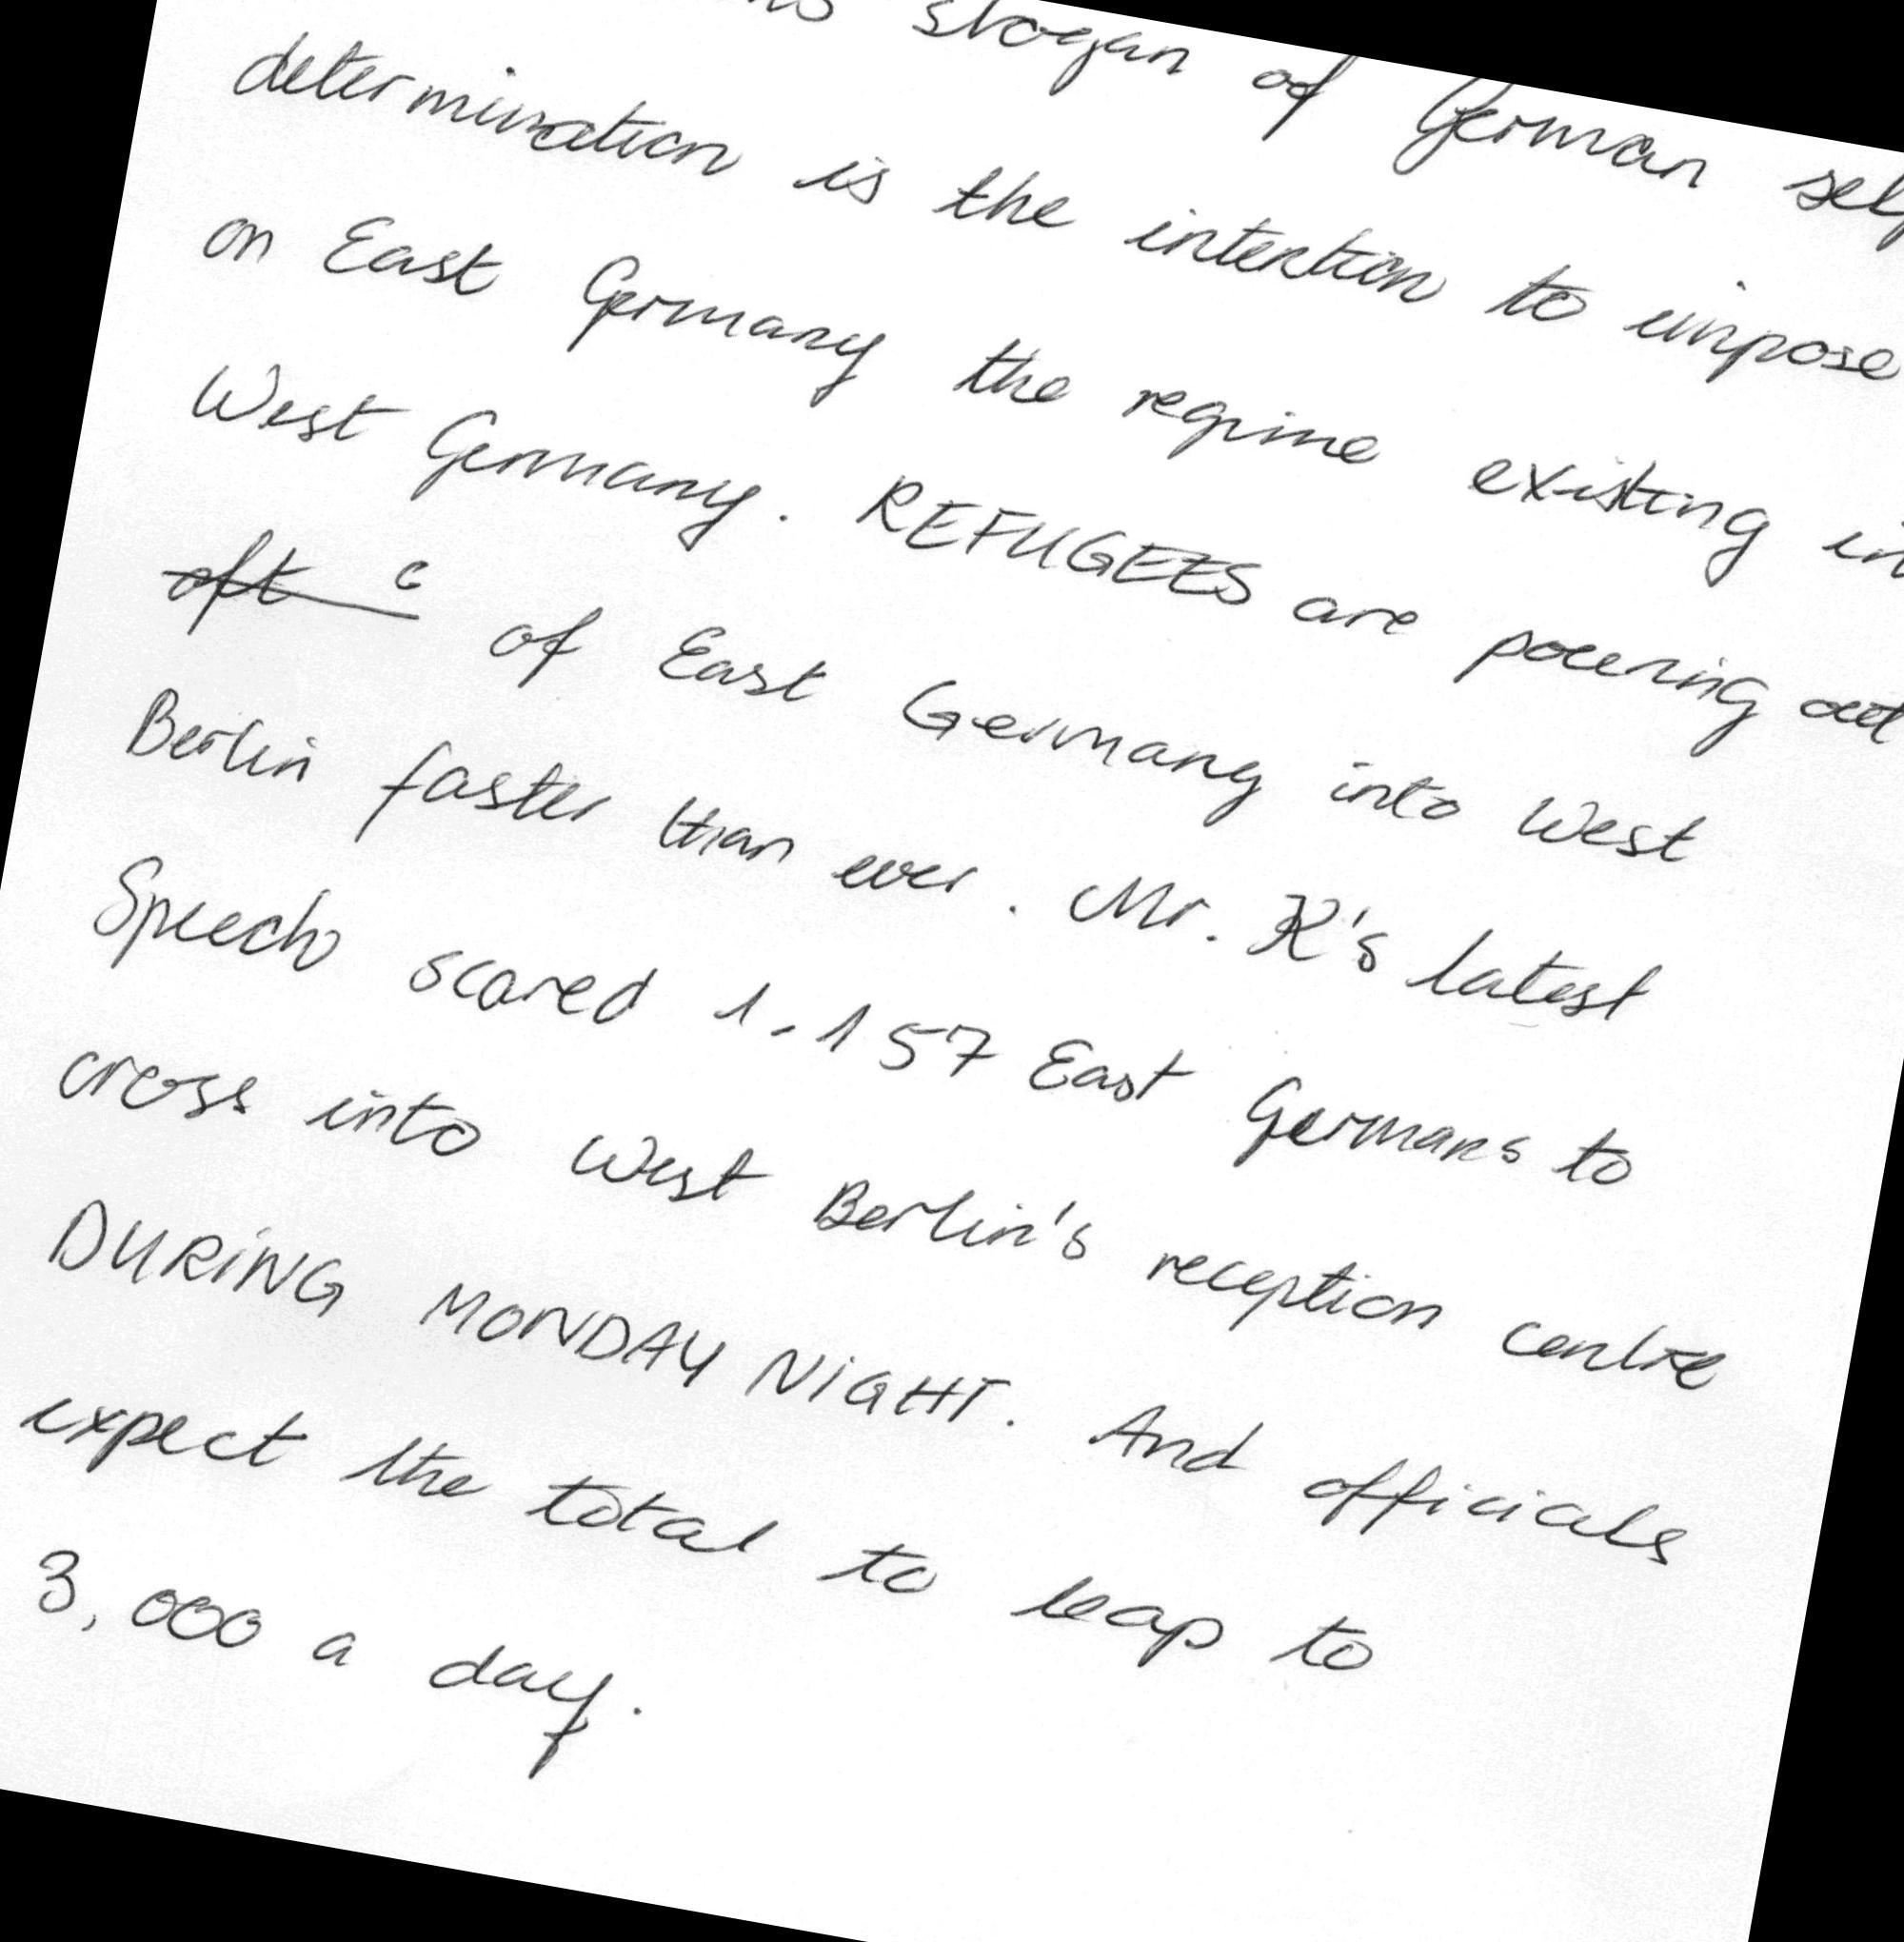 slogan of German self
determination is the intention to impose
on East Germany the regime existing in
West Germany. REFUGEES are pouring out
of East Germany into West
Berlin faster than ever. Mr. K's latest
Speech scared 1.157 East Germans to
cross into West Berlin's reception centre
DURING MONDAY NIGHT. And officials
expect the total to leap to
3,000 a day.